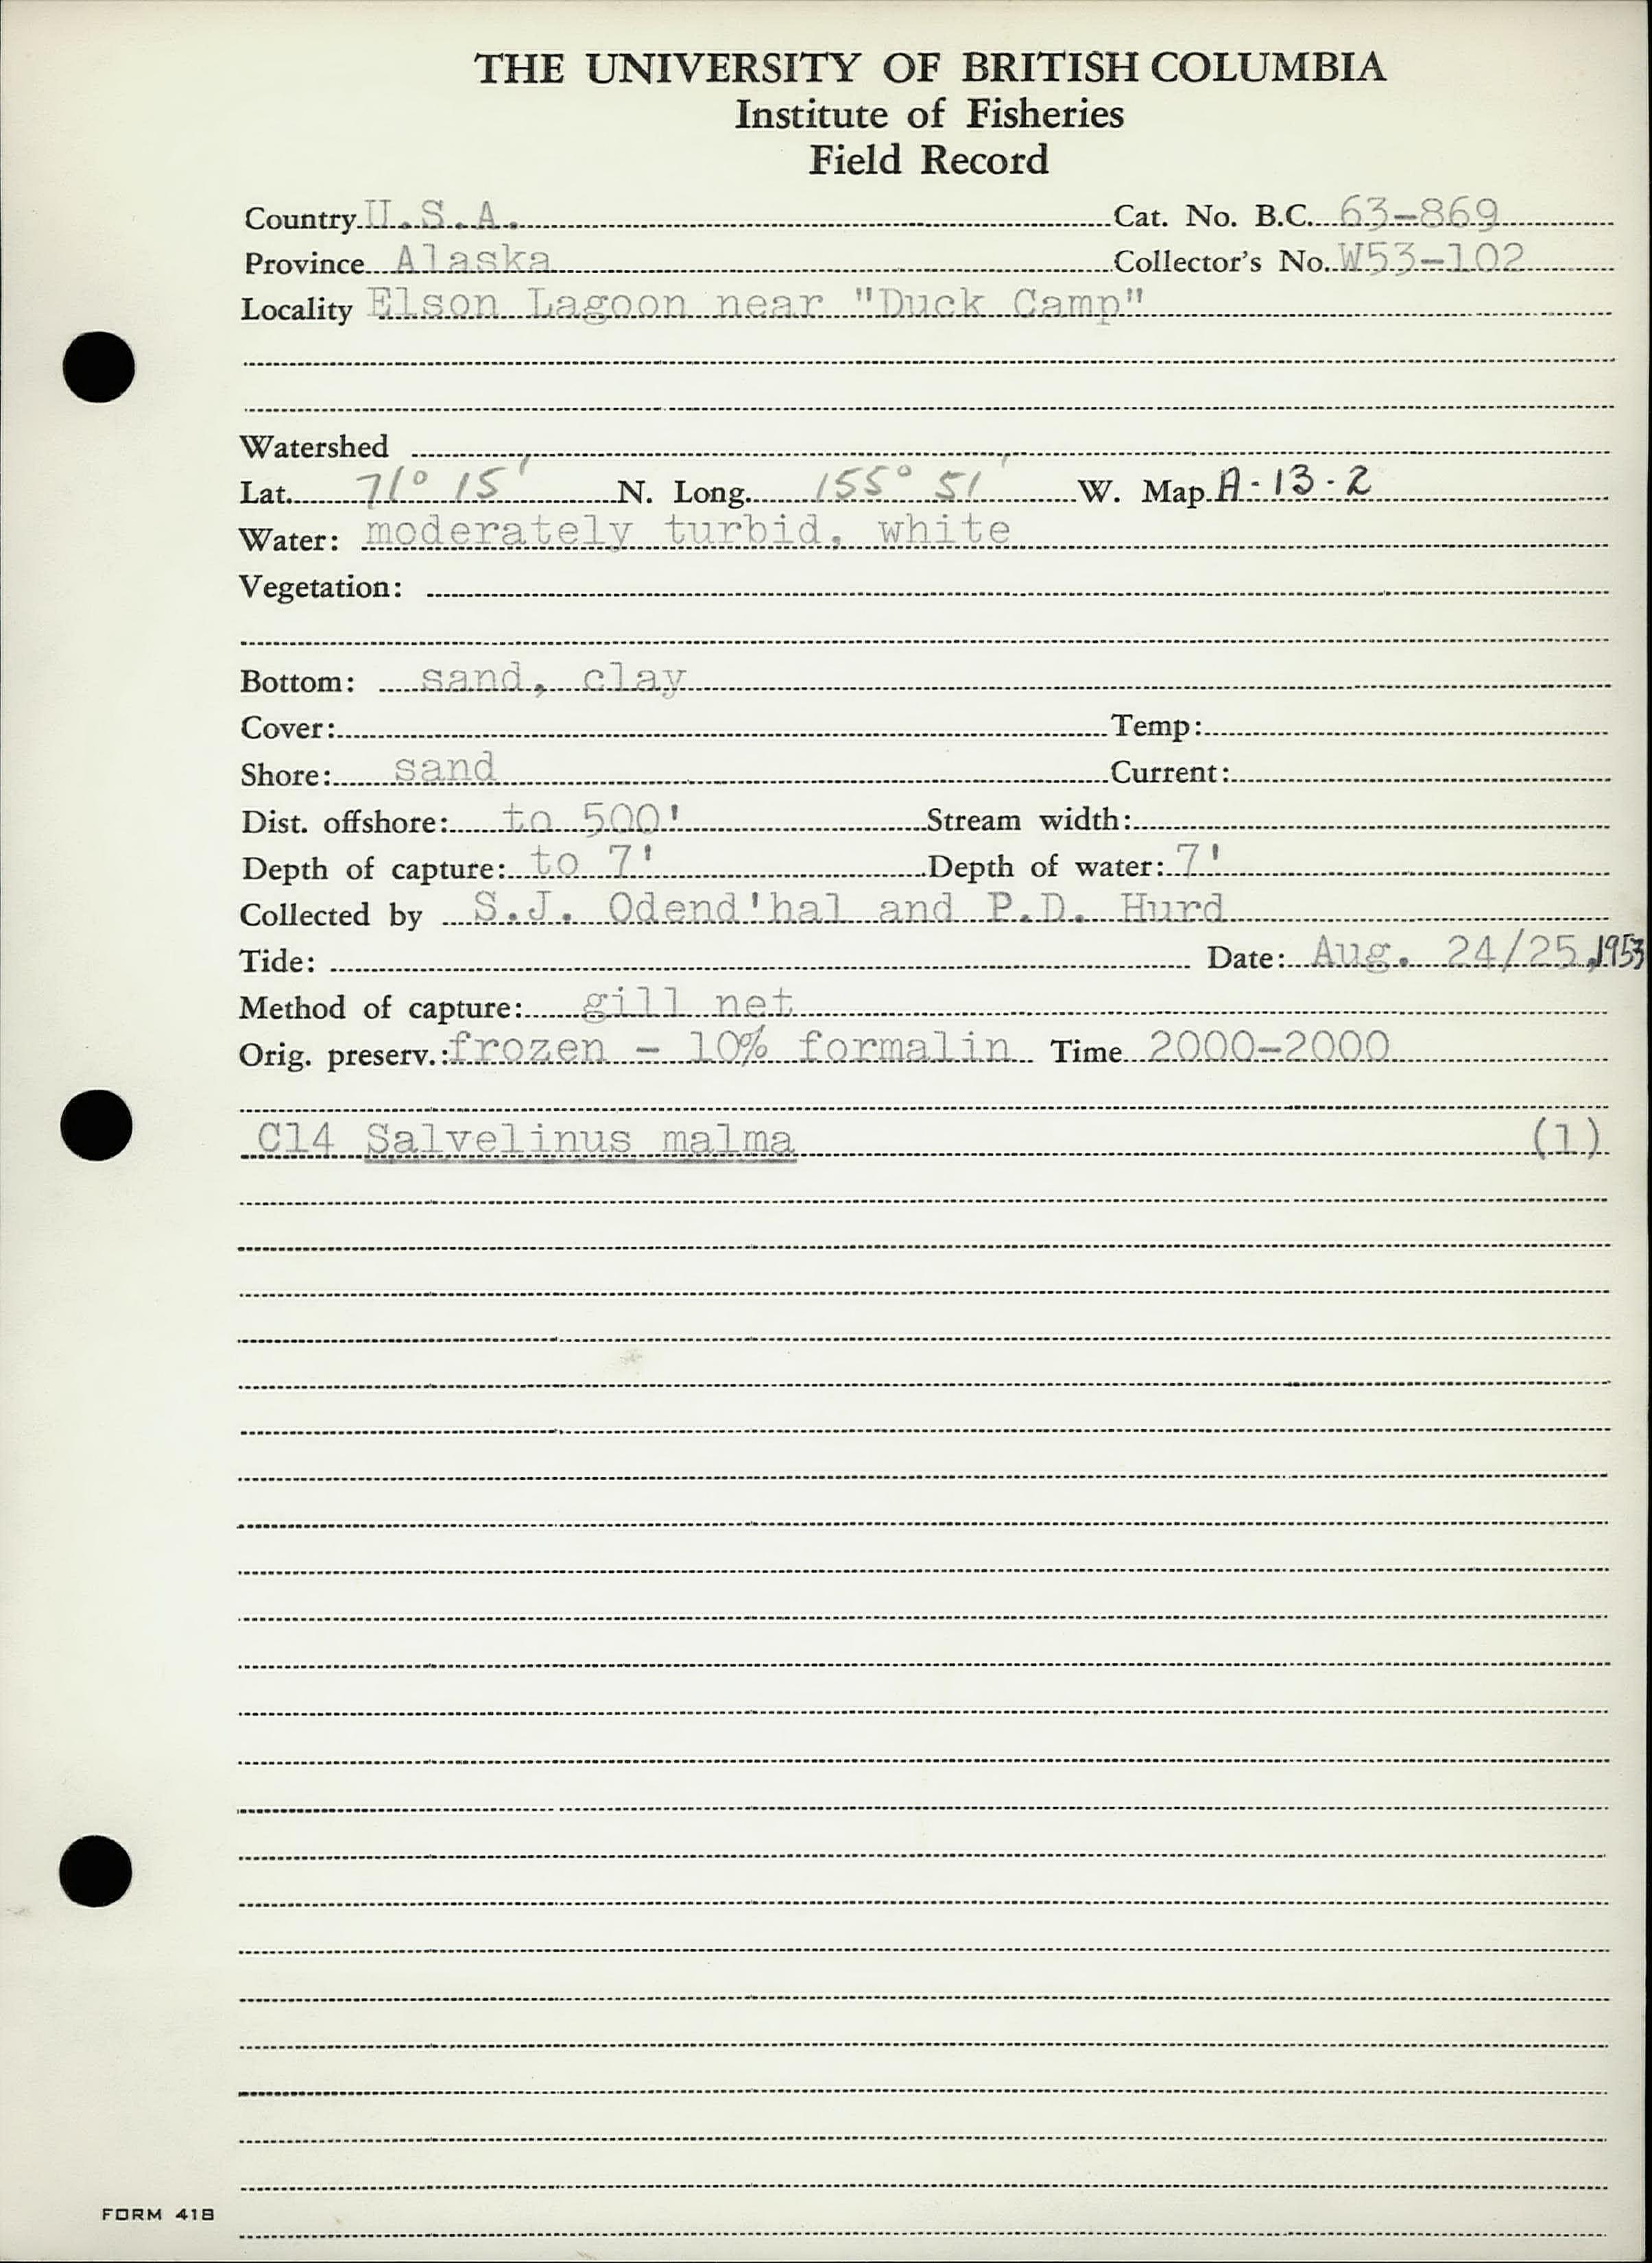 THE UNIVERSITY OF BRITISH COLUMBIA
Institute of Fisheries
Field Record
Country U.S.A. Cat. No. B.C. 63-869
Province Alaska Collector's No. W53-102
Locality Elson Lagoon near "Duck Camp"
Watershed
Lat. 71° 15' N. Long. 155° 51' W. Map A-13-2
Water: moderately turbid, white
Vegetation:
Bottom: sand, clay
Cover: Temp:
Shore: sand Current:
Dist. offshore: to 500' Stream width:
Depth of capture: to 7' Depth of water: 7'
Collected by S.J. Odend'hal and P.D. Hurd
Tide: Date: Aug. 24/25, 1953
Method of capture: gill net
Orig. preserv.: frozen - 10% formalin Time 2000-2000
C14 Salvelinus malma (1)
FORM 418